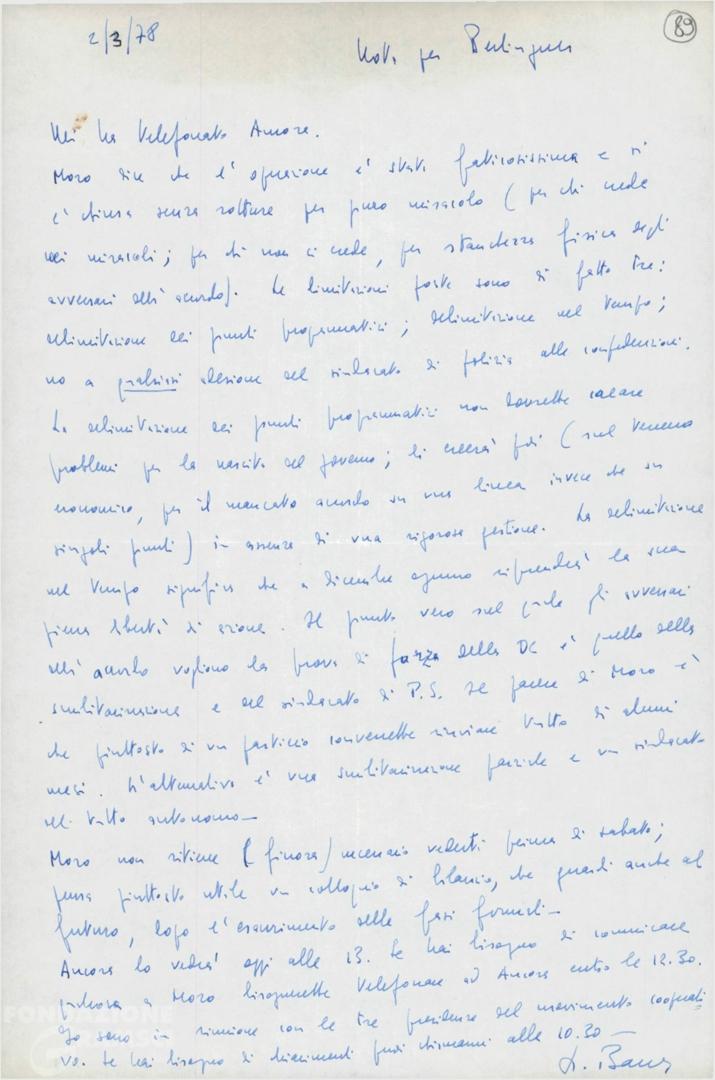 89
2/3/78
Nota per Berlinguer
Mi ha telefonato Ancora.
Moro dice che l'operazione è stata faticosissima e si
è chiusa senza rotture per puro miracolo (per chi crede
nei miracoli; per chi non ci crede, per stanchezza fisica degli
avversari dell'accordo). Le limitazioni poste sono di fatto tre:
delimitazione dei punti programmatici; delimitazione nel tempo;
no a qualsiasi adesione del sindacato di polizia alle confederazioni.
La delimitazione dei punti programmatici non dovrebbe creare
problemi per la nascita del governo; li creerà poi (sul terreno
economico, per il mancato accordo su una linea invece che su
singoli punti) in assenza di una rigorosa gestione. La delimitazione
nel tempo significa che a dicembre ognuno riprenderà la sua
piena libertà di azione. Il punto vero sul quale gli avversari
dell'accordo vogliono la prova di forza della DC è quello della
smilitarizzazione e del sindacato di P.S. Il parere di Moro è
che piuttosto di un pasticcio converrebbe rinviare tutto di alcuni
mesi. L'alternativa è una smilitarizzazione parziale e un sindacato
del tutto autonomo—
Moro non ritiene (finora) necessario vederti prima di sabato;
pensa piuttosto utile un colloquio di bilancio, che guardi anche al
futuro, dopo l'esaurimento delle fasi formali—
Ancora lo vedrà oggi alle 13. Se hai bisogno di comunicare
qualcosa a Moro bisognerebbe telefonare ad Ancora entro le 12.30.
Io sono in riunione con le tre presidenze del movimento cooperati-
vo. Se hai bisogno di chiarimenti puoi chiamarmi alle 10.30—
L. Barca
FONDAZIONE
GRAMSCI